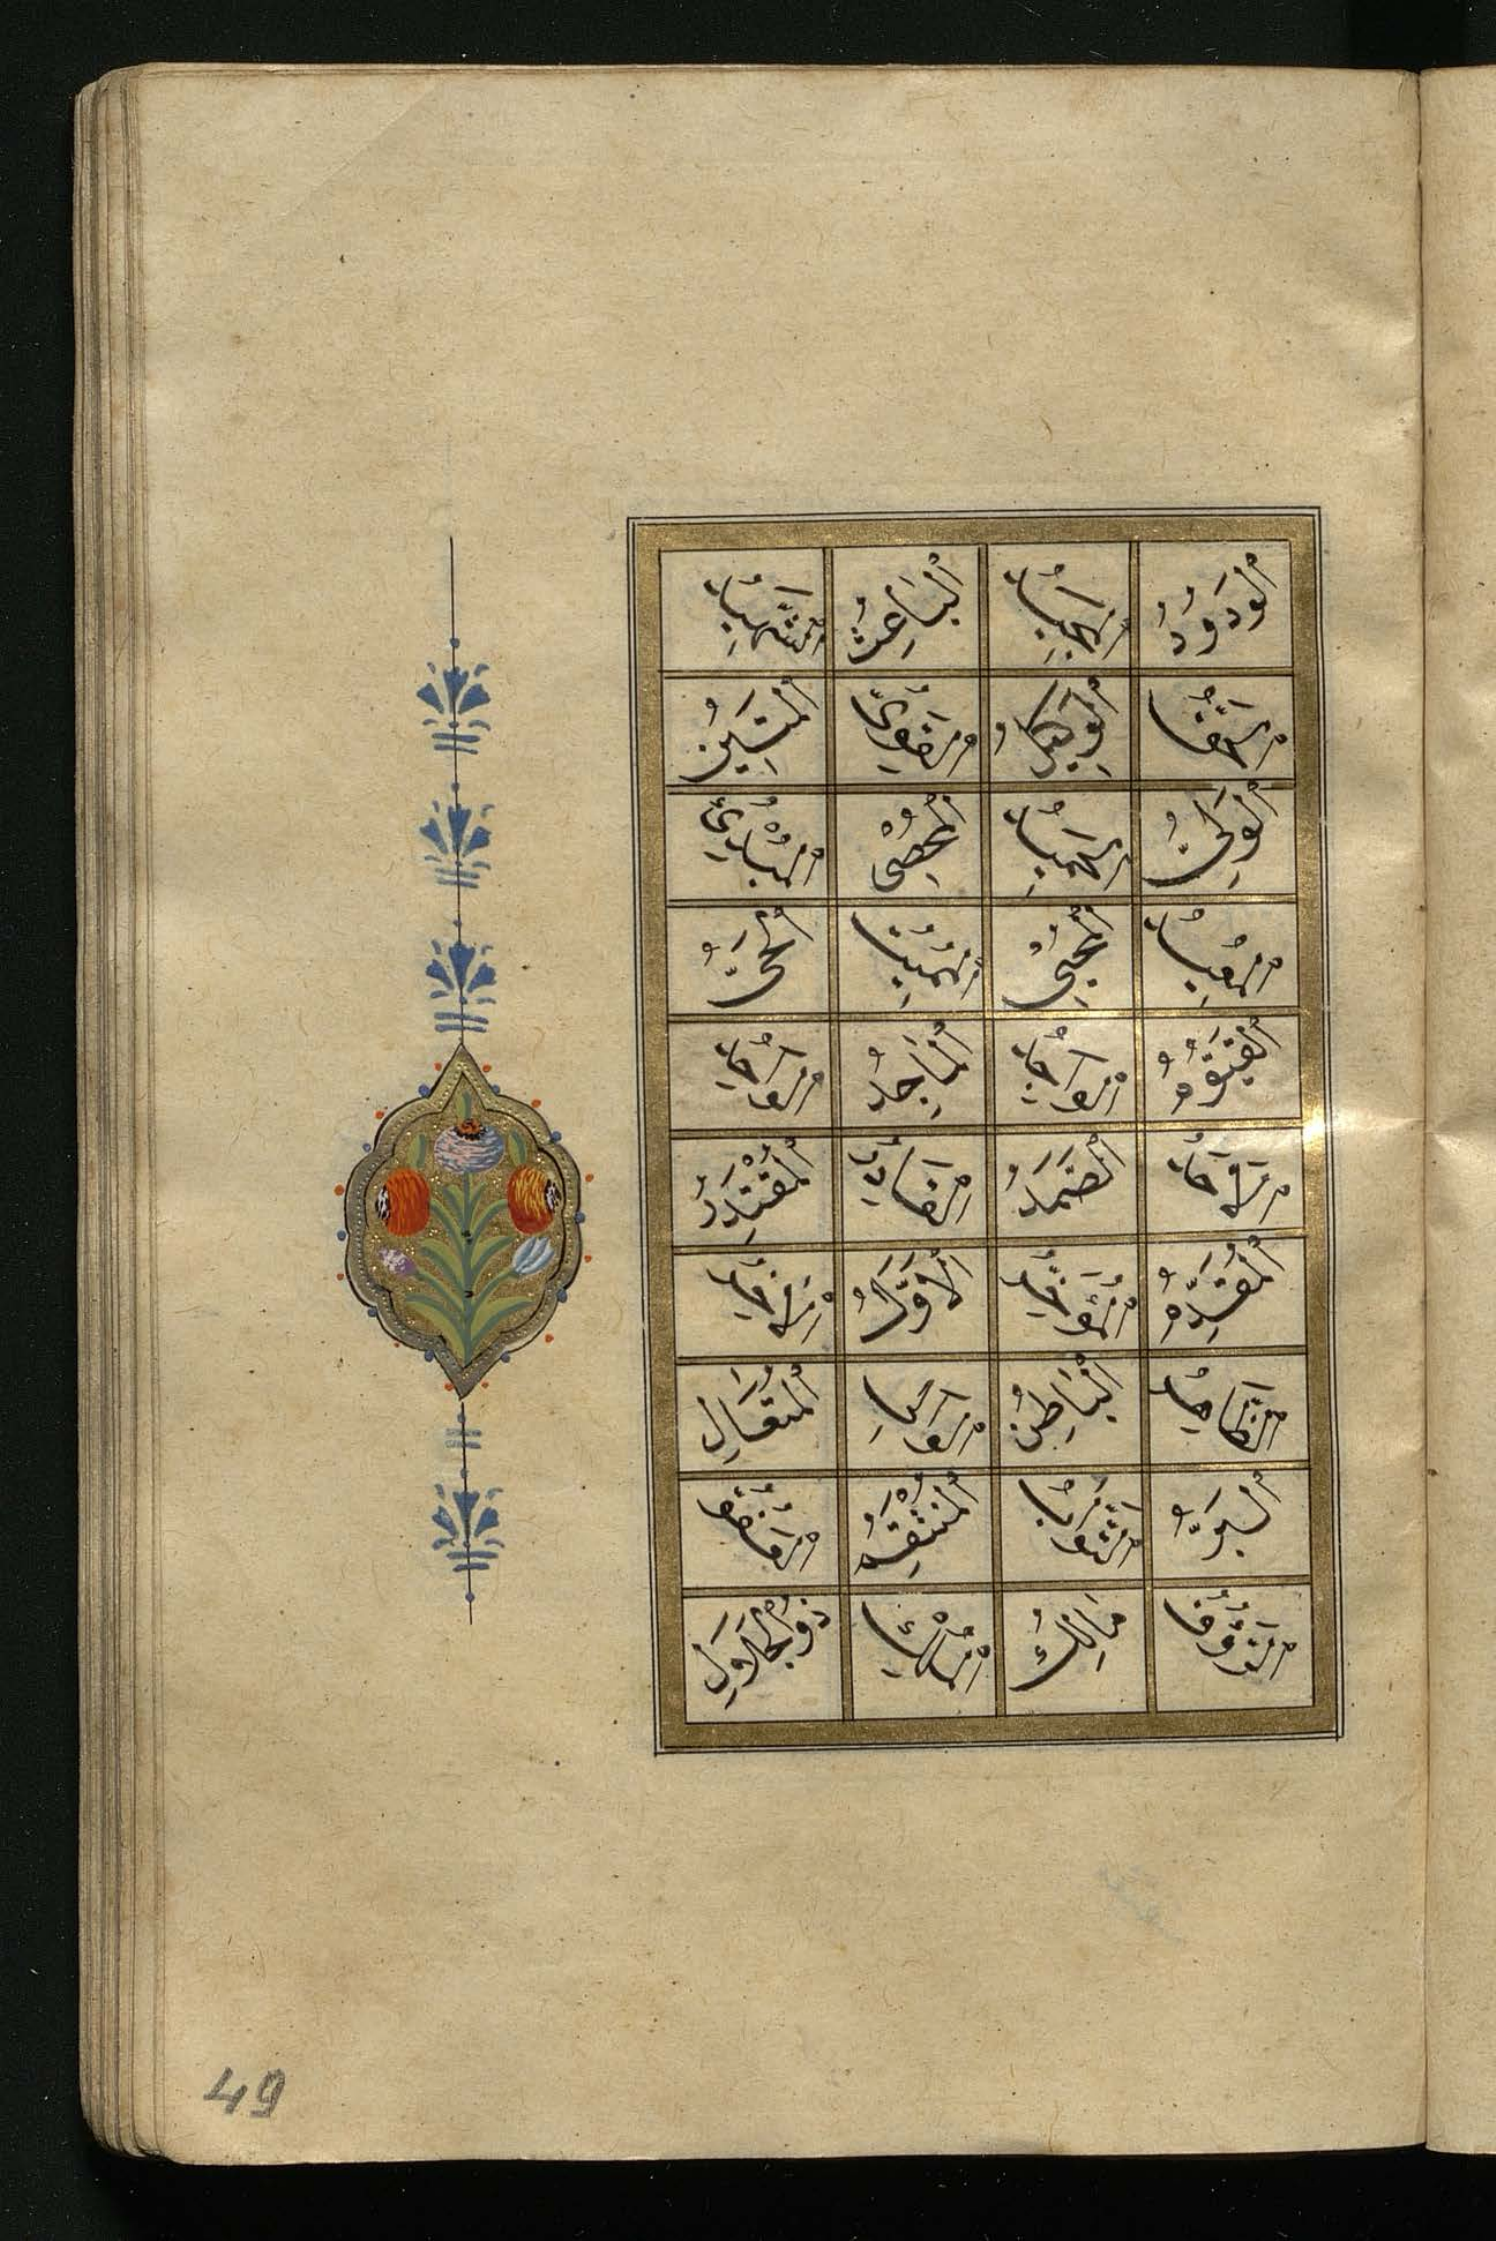 اَلْوَدُودُ اَلْمَجِيدُ اَلْبَاعِثُ اَلشَّهِيدُ
اَلْحَقُّ اَلْوَكِيلُ اَلْقَوِيُّ اَلْمَتِينُ
اَلْوَلِىُّ اَلْحَمِيدُ اَلْمُحْصِى اَلْمُبْدِئُ
اَلْمُعِيدُ اَلْمُحْيِى اَلْمُمِيتُ اَلْحَىُّ
اَلْقَيُّومُ اَلْوَاجِدُ اَلْمَاجِدُ اَلْوَاحِدُ
اَلْاَحَدُ اَلصَّمَدُ اَلْقَادِرُ اَلْمُقْتَدِرُ
اَلْمُقَدِّمُ اَلْمُؤَخِّرُ اَلْاَوَّلُ اَلْاٰخِرُ
اَلظَّاهِرُ اَلْبَاطِنُ اَلْوَالِى اَلْمُتَعَالِ
اَلْبَرُّ اَلتَّوَّابُ اَلْمُنْتَقِمُ اَلْعَفُوُّ
اَلرَّؤُوفُ مَالِكُ الْمُلْكِ ذُو الْجَلَالِ
49